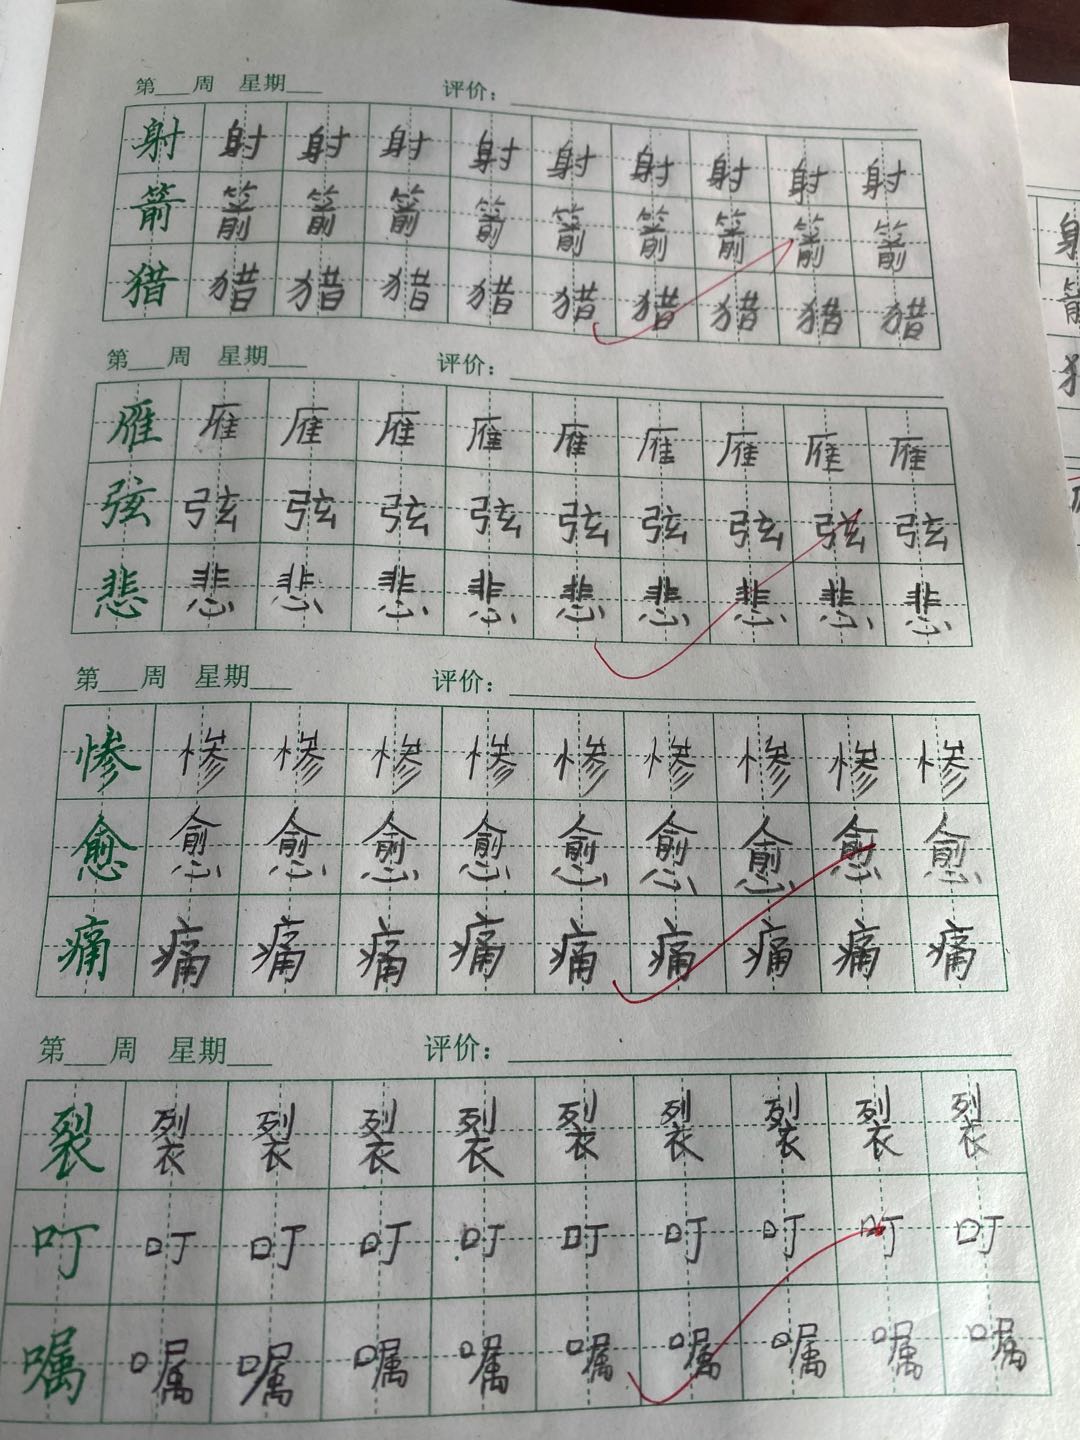 第___周 星期___ 评价：___
射 射 射 射 射 射 射 射 射 射
箭 箭 箭 箭 箭 箭 箭 箭 箭 箭
猎 猎 猎 猎 猎 猎 猎 猎 猎 猎
第___周 星期___ 评价：___
雁 雁 雁 雁 雁 雁 雁 雁 雁 雁
弦 弦 弦 弦 弦 弦 弦 弦 弦 弦
悲 悲 悲 悲 悲 悲 悲 悲 悲 悲
第___周 星期___ 评价：___
惨 惨 惨 惨 惨 惨 惨 惨 惨 惨
愈 愈 愈 愈 愈 愈 愈 愈 愈 愈
痛 痛 痛 痛 痛 痛 痛 痛 痛 痛
第___周 星期___ 评价：___
裂 裂 裂 裂 裂 裂 裂 裂 裂 裂
叮 叮 叮 叮 叮 叮 叮 叮 叮 叮
嘱 嘱 嘱 嘱 嘱 嘱 嘱 嘱 嘱 嘱